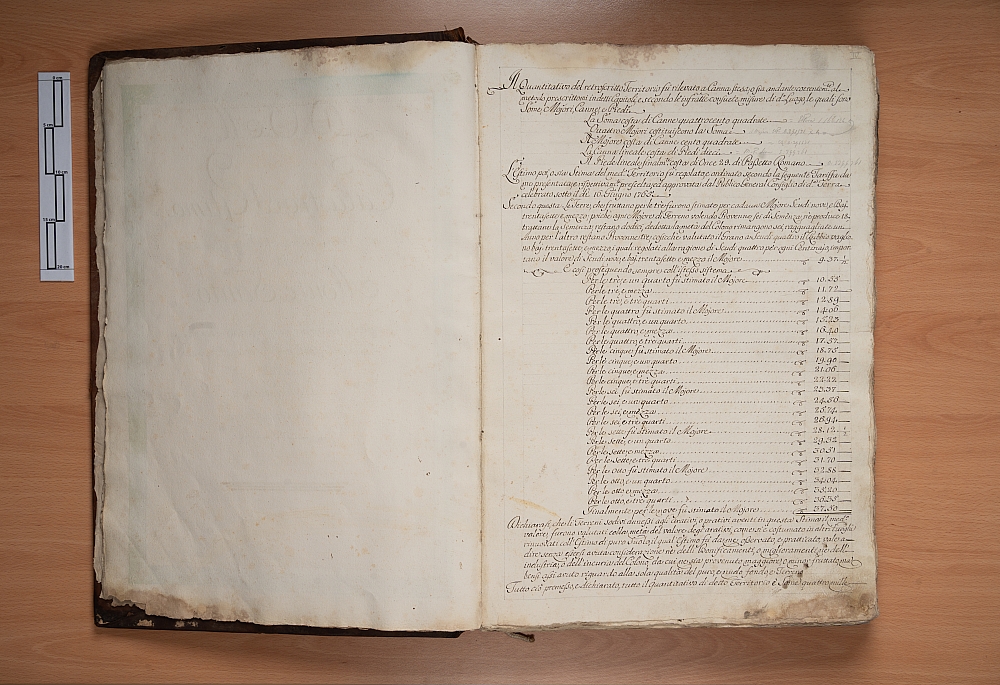 Il Quantitativo del retroscritto Territorio fù rilevato a Canna stesa, o sia andante coerentem.e al
metodo prescrittomi in detti Capitoli, e secondo le infratte consuete misure di d.o Luogo, le quali sono
Some, Mojori, Canne, e Piedi.
La Soma costa di Canne quattrocento quadrate
Quattro Mojori costituiscono la Soma
Il Mojoro costa di Canne cento quadrate
La Canna lineale costa di Piedi dieci
Il Piede lineale finalm.e costa di Once 29. di Passetto Romano
L'Estimo poi, o sia Stima del med.o Territorio fù regolata, e ordinata secondo la seguente Tariffa da
me presentata, e rispettivam.e prescelta, ed approvata dal Publico General Consiglio di d.a Terra
celebrato sotto il dì 16. Giugno 1765.
Secondo questa le Terre, che fruttano per le tre furono stimate per cadaun Mojore Scudi nove, e Baj.
trentasette, e mezzo, poiche ogni Mojore di Terreno volendo Provenne sei di Semenza, ne produce 18.
frattanto la semenza, restano dodici, dedotta la metà del Colono rimangono sei, ragguagliate un
Anno per l'altro restano Provenne tre, cosiche valutato il Grano a scudi quattro il Rubbio vaglio
no baj. trentasette, e mezzo, i quali regolati alla ragione di Scudi quattro per ogni Centonajo, impor
tano il valore di Scudi nove, e baj. trentasette, e mezzo il Mojore 9.37 ½
E così proseguendo sempre coll'istesso sistema
Per le tre, e un quarto fù stimato il Mojore 10.55
Per le tre, e mezza 11.72
Per le tre, e tre quarti 12.89
Per le quattro fù stimato il Mojore 14.06
Per le quattro, e un quarto 15.23
Per le quattro, e mezza 16.40
Per le quattro, e tre quarti 17.57
Per le cinque fù stimato il Mojore 18.75
Per le cinque, e un quarto 19.90
Per le cinque, e mezza 21.06
Per le cinque, e tre quarti 22.22
Per le sei fù stimato il Mojore 23.37
Per le sei, e un quarto 24.56
Per le sei, e mezza 25.74
Per le sei, e tre quarti 26.94
Per le sette fù stimato il Mojore 28.12 ½
Per le sette, e un quarto 29.32
Per le sette, e mezza 30.51
Per le sette, e tre quarti 31.70
Per le otto fù stimato il Mojore 32.88
Per le otto, e un quarto 34.04
Per le otto, e mezza 35.20
Per le otto, e tre quarti 36.35
Finalmente per le nove fù stimato il Mojore 37.50
Dichiarasi, che li Terreni sodivi annessi agl'Arativi, o prativi aventi in questa Stima il med.o
valore furono valutati colla metà del valore degl'arativi, come si è costumato in altri luoghi
rinnovati coll'Estimo di puro Suolo, il qual Estimo fù da me osservato, e praticato, vale a
dire senza essersi avuta considerazione nè dell'Bonificamenti, o miglioramenti, nè dell'
industria, o dell'incuria del Colono, da cui ne sia provenuto maggiore, o minor fruttato, ma
bensì essi avuto riguardo alla sola qualità del puro, e nudo fondo, e Terreno.
Tutto ciò premesso, e dichiarato, tutto il quantitativo di detto Territorio è Some quattromille